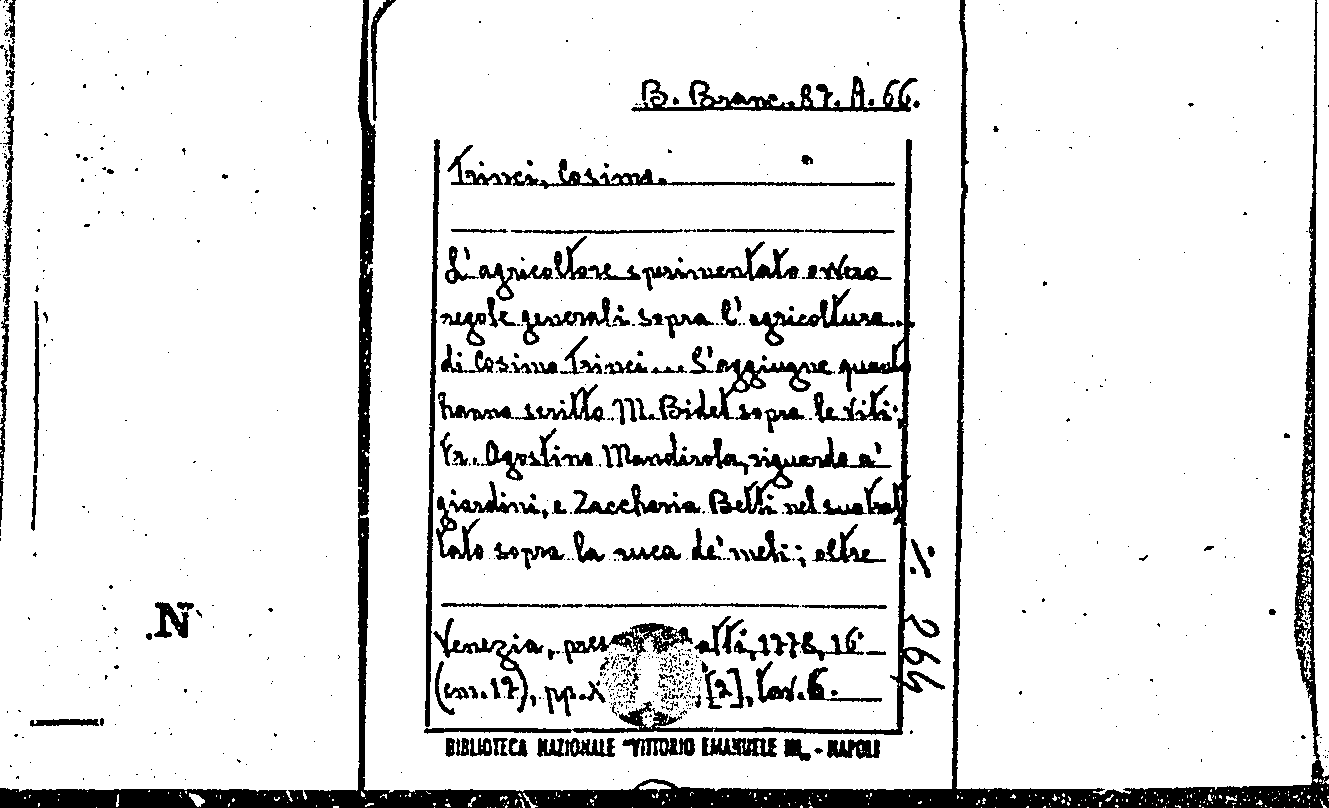 B. Branc. 87. A. 66.
Trinci, Cosimo.
L'agricoltore sperimentato ovvero
regole generali sopra l'agricoltura...
di Cosimo Trinci... S'aggiugne quanto
hanno scritto M. Bidet sopra le viti;
Fr. Agostino Mandirola, riguardo a'
giardini, e Zaccharia Betti nel suo trat
tato sopra la ruca de' meli; oltre
Venezia, 1778, 16°
(cm. 17), pp. [2], tav. 6.
BIBLIOTECA NAZIONALE "VITTORIO EMANUELE III" - NAPOLI
N